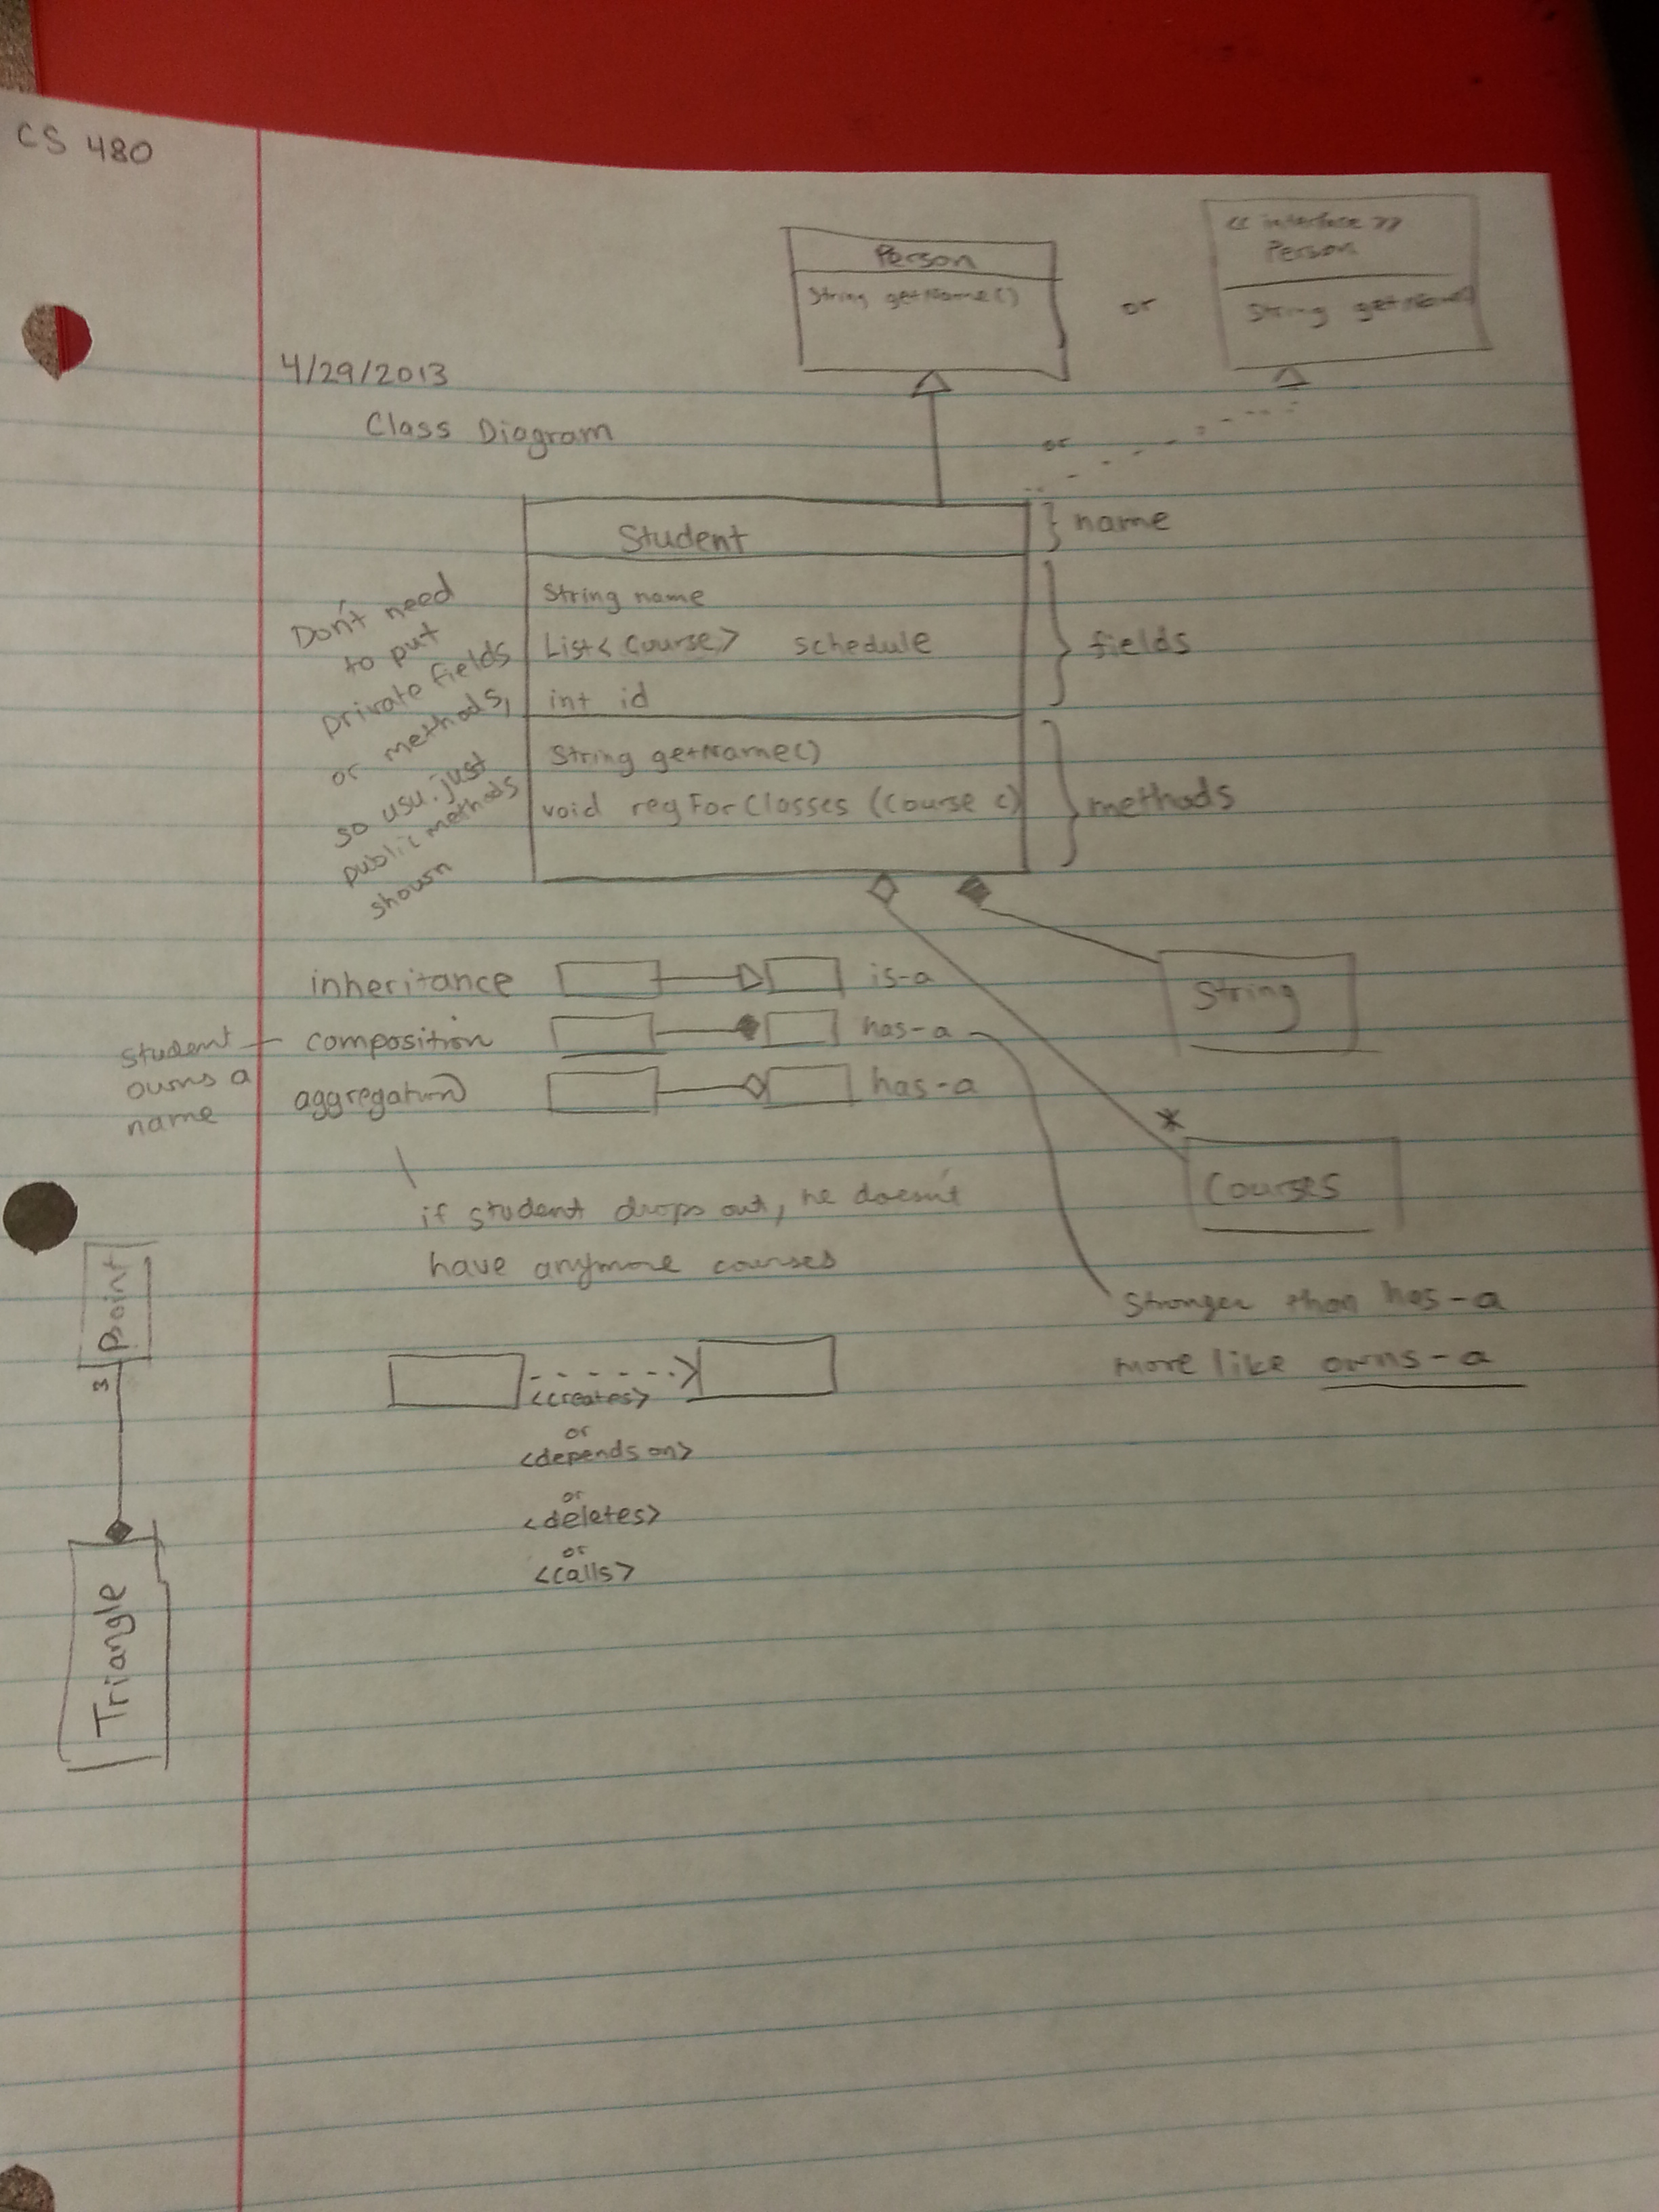 CS 480
Person
String getName()
or
<< interface >>
Person
String getName()
4/29/2013
Class Diagram
or
Student
} name
String name
List<Course> schedule
int id
} fields
String getName()
void regForClasses (Course c)
} methods
Don't need
to put
private fields
or methods,
so usu. just
public methods
shown
inheritance is-a
composition has-a
aggregation has-a
student
owns a
name
String
*
Courses
if student drops out, he doesn't
have anymore courses
stronger than has-a
more like owns-a
<creates>
or
<depends on>
or
<deletes>
or
<calls>
Point
3
Triangle